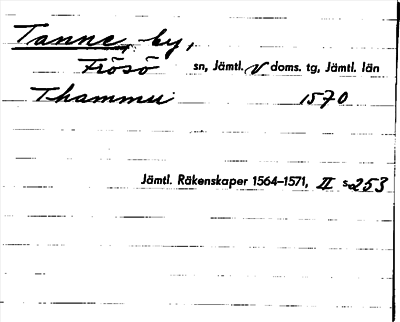 Tanne, by,
Frösö sn, Jämtl. V doms. tg, Jämtl. län
Thammu 1570
Jämtl. Räkenskaper 1564–1571, II s. 253